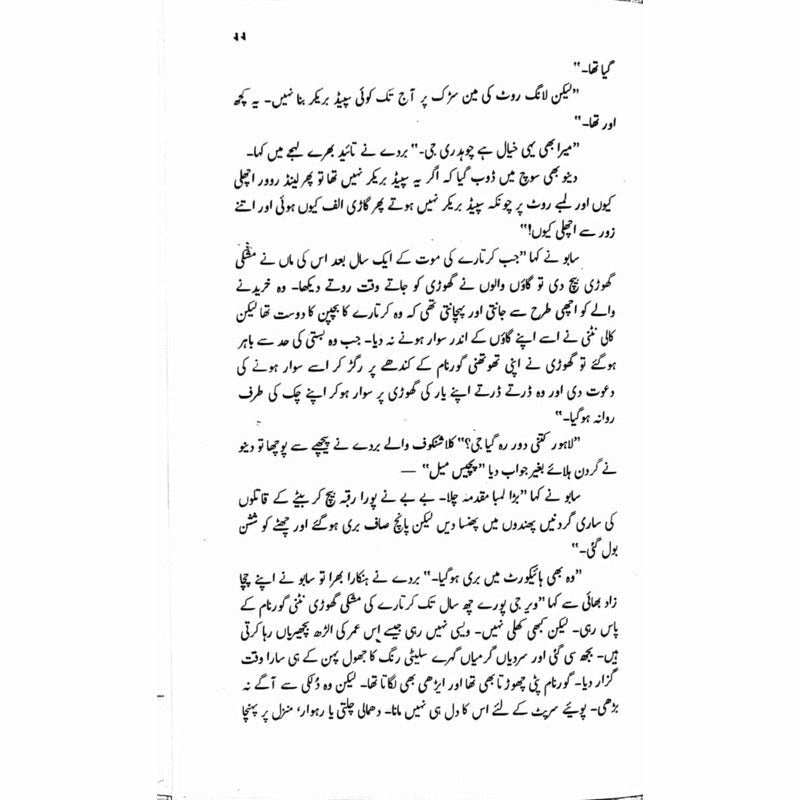 ۶۶
گیا تھا۔"
"لیکن لانگ روٹ کی مین سڑک پر آج تک کوئی سپیڈ بریکر بنا نہیں۔ یہ کچھ
اور تھا۔"
"میرا بھی یہی خیال ہے چوہدری جی۔" بردے نے تائید بھرے لہجے میں کہا۔
دینو بھی سوچ میں ڈوب گیا کہ اگر یہ سپیڈ بریکر نہیں تھا تو پھر لینڈ روور اچھلی
کیوں اور لمبے روٹ پر چونکہ سپیڈ بریکر نہیں ہوتے پھر گاڑی الف کیوں ہوئی اور اتنے
زور سے اچھلی کیوں!"
سابو نے کہا "جب کرتارے کی موت کے ایک سال بعد اس کی ماں نے مشکی
گھوڑی بیچ دی تو گاؤں والوں نے گھوڑی کو جاتے وقت روتے دیکھا۔ وہ خریدنے
والے کو اچھی طرح سے جانتی اور پہچانتی تھی کہ وہ کرتارے کا بچپن کا دوست تھا لیکن
کالی نٹنی نے اسے اپنے گاؤں کے اندر سوار ہونے نہ دیا۔ جب وہ بستی کی حد سے باہر
ہوگئے تو گھوڑی نے اپنی تھوتھنی گورنام کے کندھے پر رگڑ کر اسے سوار ہونے کی
دعوت دی اور وہ ڈرتے ڈرتے اپنے یار کی گھوڑی پر سوار ہوکر اپنے چک کی طرف
روانہ ہوگیا۔"
"لاہور کتنی دور رہ گیا جی؟" کلاشنکوف والے بردے نے پیچھے سے پوچھا تو دینو
نے گردن ہلائے بغیر جواب دیا "پچیس میل" —
سابو نے کہا "بڑا لمبا مقدمہ چلا۔ بے بے نے پورا رقبہ بیچ کر بیٹے کے قاتلوں
کی ساری گردنیں پھندوں میں پھنسا دیں لیکن پانچ صاف بری ہوگئے اور چھٹے کو ششن
بول گئی۔"
"وہ بھی ہائیکورٹ میں بری ہوگیا۔" بردے نے ہنکارا بھرا تو سابو نے اپنے چچا
زاد بھائی سے کہا "ویر جی پورے چھ سال تک کرتارے کی مشکی گھوڑی نٹنی گورنام کے
پاس رہی۔ لیکن کبھی کھلی نہیں۔ ویسی نہیں رہی جیسے اس عمر کی الڑھ پچھیریاں رہا کرتی
ہیں۔ بجھ سی گئی اور سردیاں گرمیاں گہرے سلیٹی رنگ کا جھول پہن کے ہی سارا وقت
گزار دیا۔ گورنام پٹی چھوڑتا بھی تھا اور ایڑھی بھی لگاتا تھا۔ لیکن وہ دُلکی سے آگے نہ
بڑھی۔ پوئیے سرپٹ کے لئے اس کا دل ہی نہیں مانا۔ دھمالی چلتی یا رہوار، منزل پر پہنچا